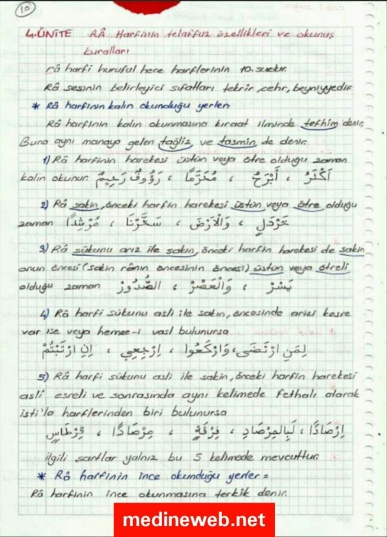 10
4.ÜNİTE RÂ Harfinin telaffuz özellikleri ve okunuş
kuralları
râ harfi huruful hece harflerinin 10.sudur.
Râ sesinin belirleyici sıfatları tekrir, cehr, beyniyyedir.
* Râ harfinin kalın okunduğu yerler
Râ harfinin kalın okunmasına kıraat ilminde tefhim denir.
Buna aynı manaya gelen tağliz ve tasmin de denir.
1) Râ harfinin harekesi üstün veya ötre olduğu zaman
kalın okunur. أَكْثَرُ ، أَتُبْرِحُ ، مُكَرَّمًا ، رَؤُوفٌ رَحِيمٌ
2) Râ sakin, önceki harfin harekesi üstün veya ötre olduğu
zaman خَرْدَلٍ ، وَالْاَرْضَ ، سَخَّرْنَا ، مُرْشِدًا
3) Râ sükunu arız ile sakin, önceki harfin harekesi de sakin
onun öncesi (sakin rânın öncesinin öncesi) üstün veya ötreli
olduğu zaman يَسْرْ ، وَالْعَصْرْ ، الصُّدُورْ
4) Râ harfi sükunu asli ile sakin, öncesinde arizi kesre
var ise veya hemze-i vasl bulunursa
لِمَنِ ارْتَضَى، وَارْكَعُوا ، اِرْجِعِي ، اِنِ ارْتَبْتُمْ
5) Râ harfi sükunu asli ile sakin, önceki harfin harekesi
asli esreli ve sonrasında aynı kelimede fethalı olarak
isti'la harflerinden biri bulunursa
اِرْصَادًا ، لَبِالْمِرْصَادِ ، فِرْقَةٍ ، مِرْصَادًا ، قِرْطَاسٍ
ilgili şartlar yalnız bu 5 kelimede mevcuttur.
* Râ harfinin ince okunduğu yerler =
Râ harfinin ince okunmasına terkik denir.
medineweb.net